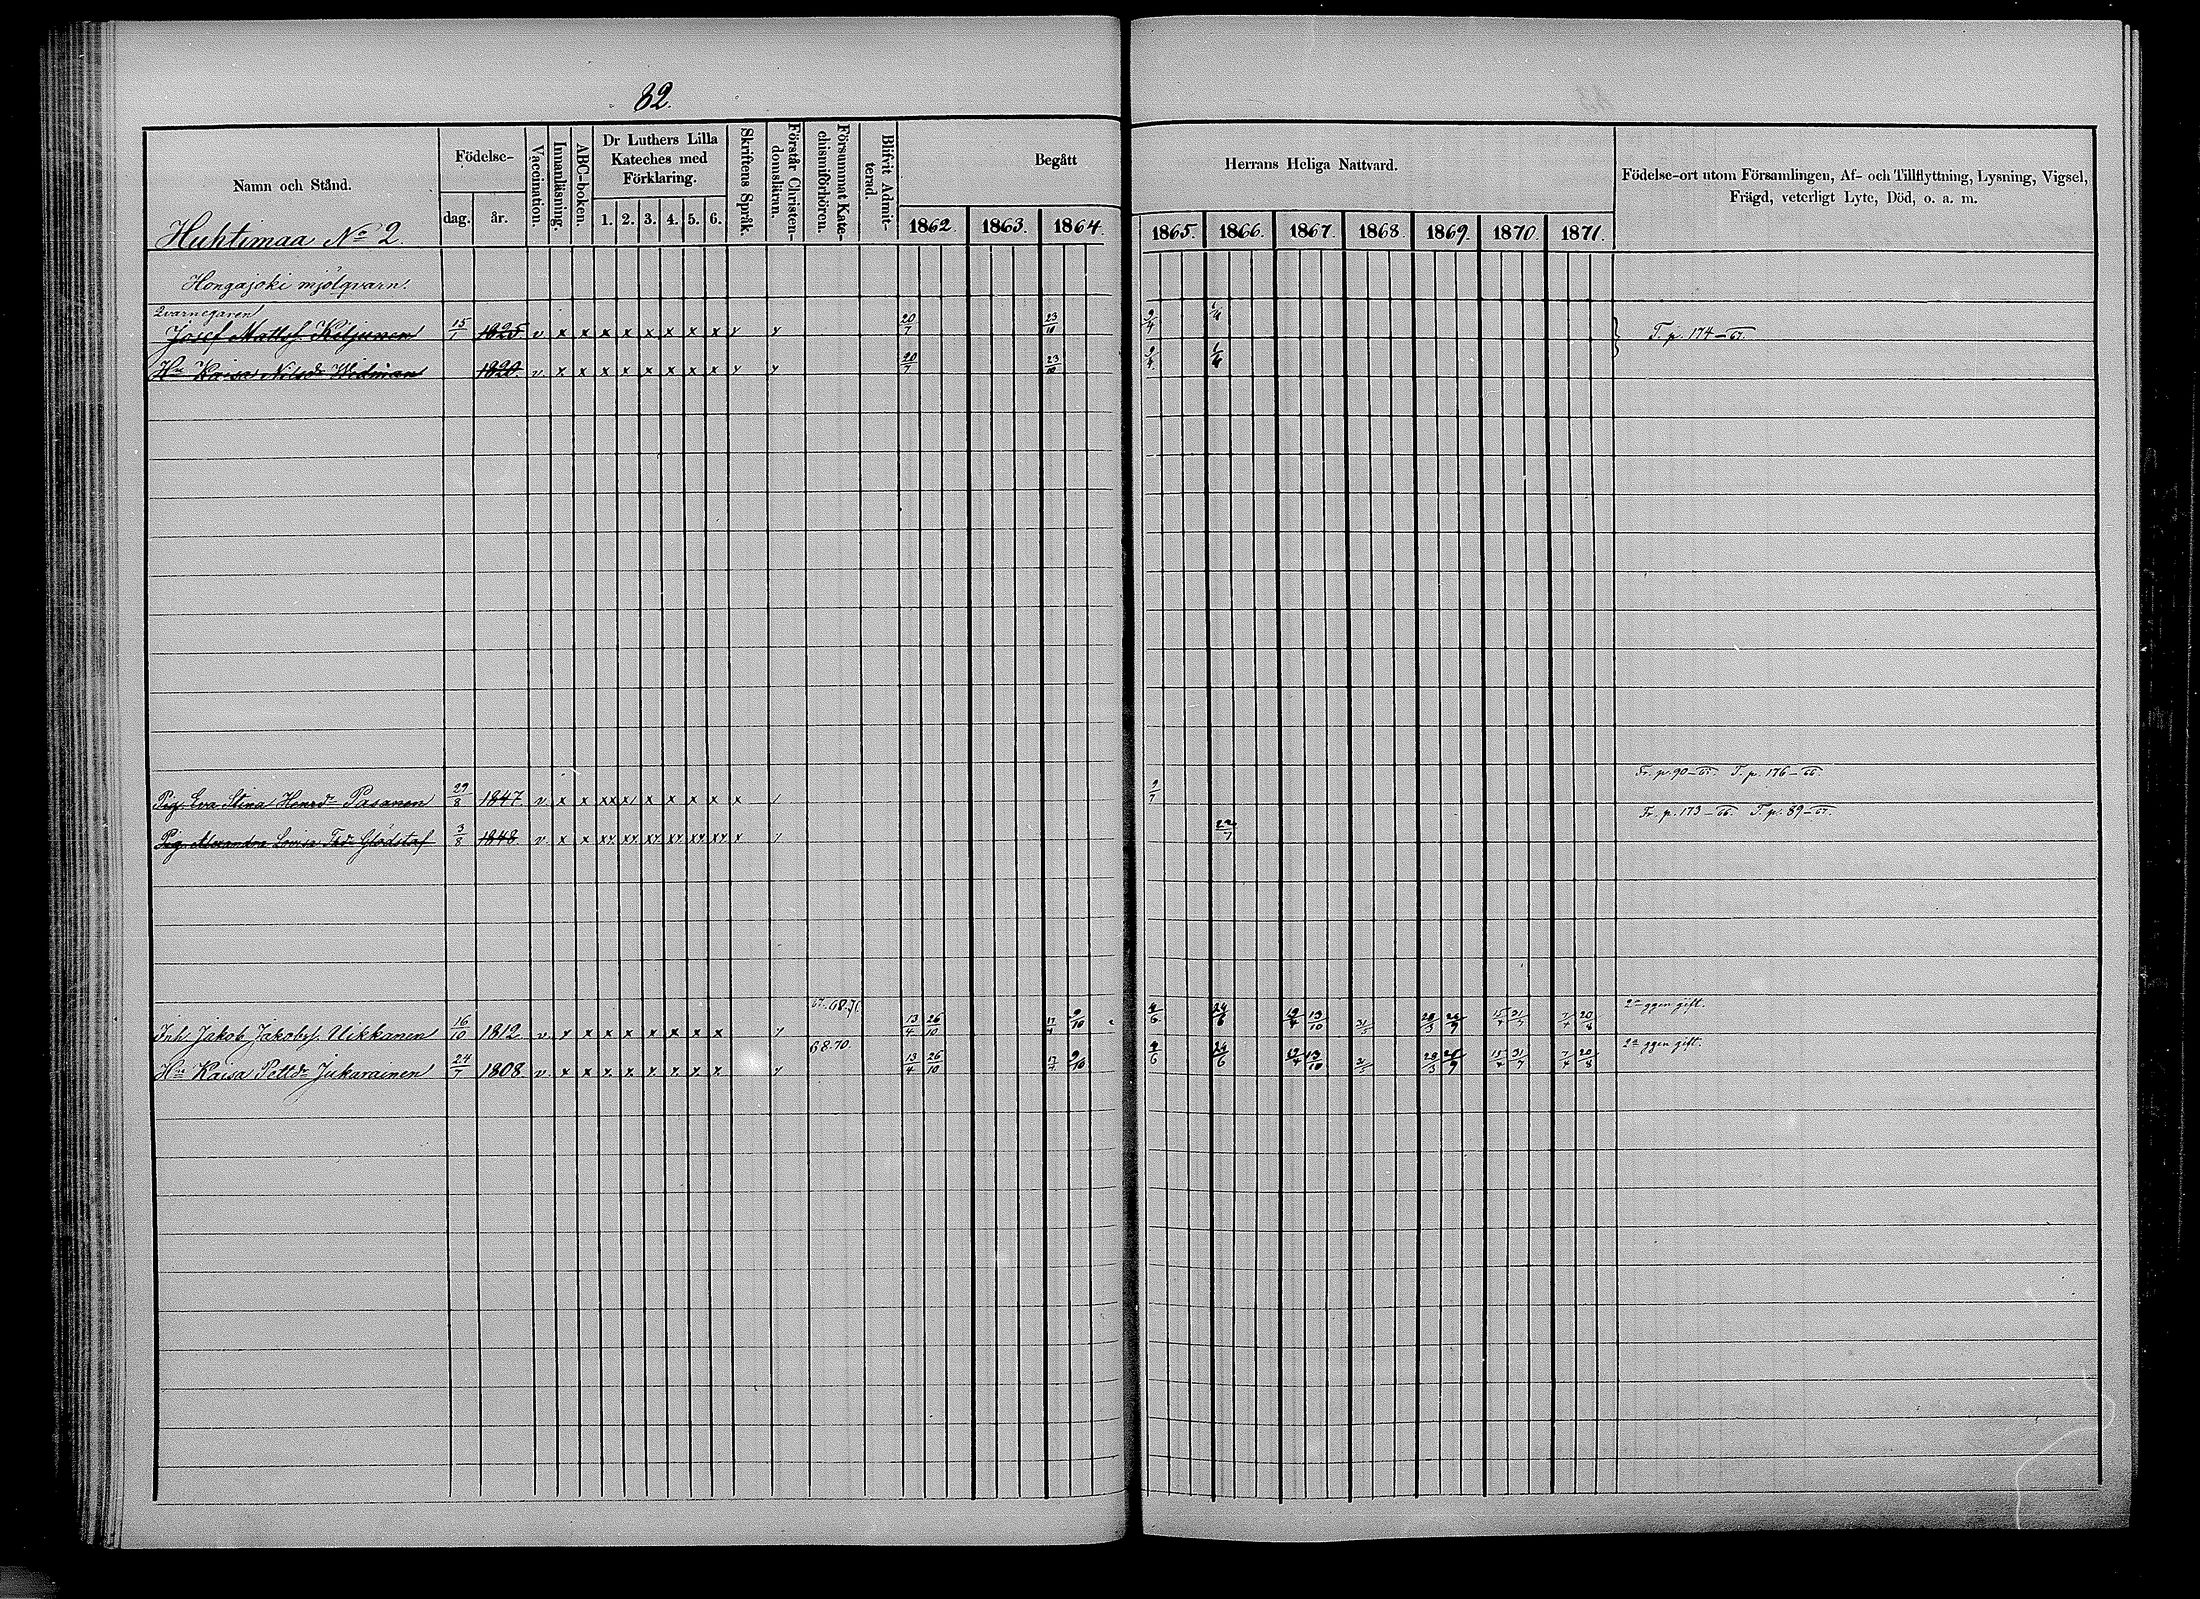 82.
Namn och Stånd.
Födelse-
dag. år.
Vaccination.
Innanläsning.
ABC-boken.
Dr Luthers Lilla
Kateches med
Förklaring.
1. 2. 3. 4. 5. 6.
Skriftens Språk.
Förstår Christen-
domsläran.
Försummat Kate-
chismiförhören.
Blifvit Admit-
terad.
Begått
Herrans Heliga Nattvard.
1862. 1863. 1864. 1865. 1866. 1867. 1868. 1869. 1870. 1871.
Födelse-ort utom Församlingen, Af- och Tillflyttning, Lysning, Vigsel,
Frägd, veterligt Lyte, Död, o. a. m.
Huhtimaa No 2.
Hongajoki mjölqvarn.
Qvarnegaren
Josef Matts. Kiljunen 15/7 1825. v x x x x x x x x y y 20/7 23/10 9/4 T. p. 174-67.
Hu Kaisa Nilsdr Widman 1820. v. x x x x x x x x y y 20/7 23/10 9/4
Fr. p. 90-65. T. p. 176-66.
Pig. Eva Stina Henrdr Pasanen 29/8 1847. v x x xx x x x x x 9/7
Fr. p. 173-66. T. p. 89-67.
Pig. Alexandra Lovisa Glödstaf 3/8 1848. v. x x xy xy xy xy xy xy x 22/7
67. 68. 71. 2a ggen gift.
Inh. Jakob Jakobs. Ulkkanen 16/10 1812. v. y x x x x x x x y 13/4 26/10 17/7 9/10 4/6 24/6 19/4 13/10 31/5 28/3 26/9 15/4 31/7 7/4 20/8
68. 70. 2a ggen gift.
Hu Kaisa Pettdr Jukarainen 24/7 1808. v x x x x x x x x y 13/4 26/10 17/7 9/10 4/6 24/6 19/4 13/10 31/5 28/3 26/9 15/4 31/7 7/4 20/8